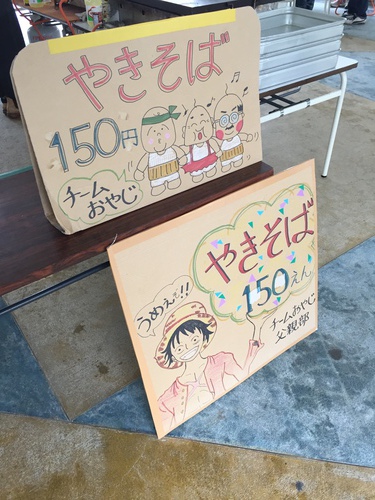 やきそば
150円
チーム
おやじ
やきそば
150えん
うめぇ!!
チームおやじ
父親部